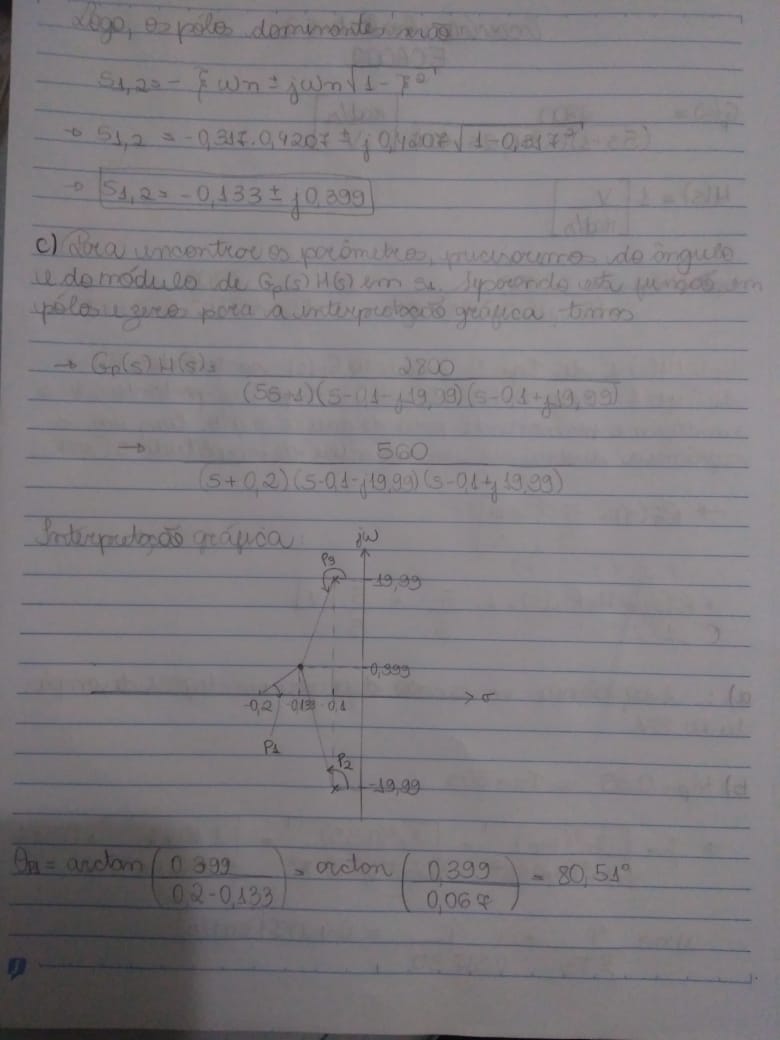 Logo, os pólos dominantes serão
S1,2 = - ξ ωn ± jωn √1 - ξ²
→ S1,2 = -0,317.0,4207 ± j 0,4207 √1-0,317²
→ S1,2 = -0,133 ± j0,399
c) Para encontrar os parâmetros, precisaremos do ângulo
e do módulo de Gp(s)H(s) em s1. Separando esta função em
pólos e zero para a interpretação gráfica, temos
→ Gp(s)H(s) = 2800
(5s+1)(s-0,1-j19,99)(s-0,1+j19,99)
→ 560
(s+0,2)(s-0,1-j19,99)(s-0,1+j19,99)
Interpretação gráfica: jω
P3
19,99
0,399
-0,2 -0,133 -0,1 σ
P1
P2
-19,99
θP1 = arctan (0,399 / 0,2-0,133) = arctan (0,399 / 0,067) = 80,51°